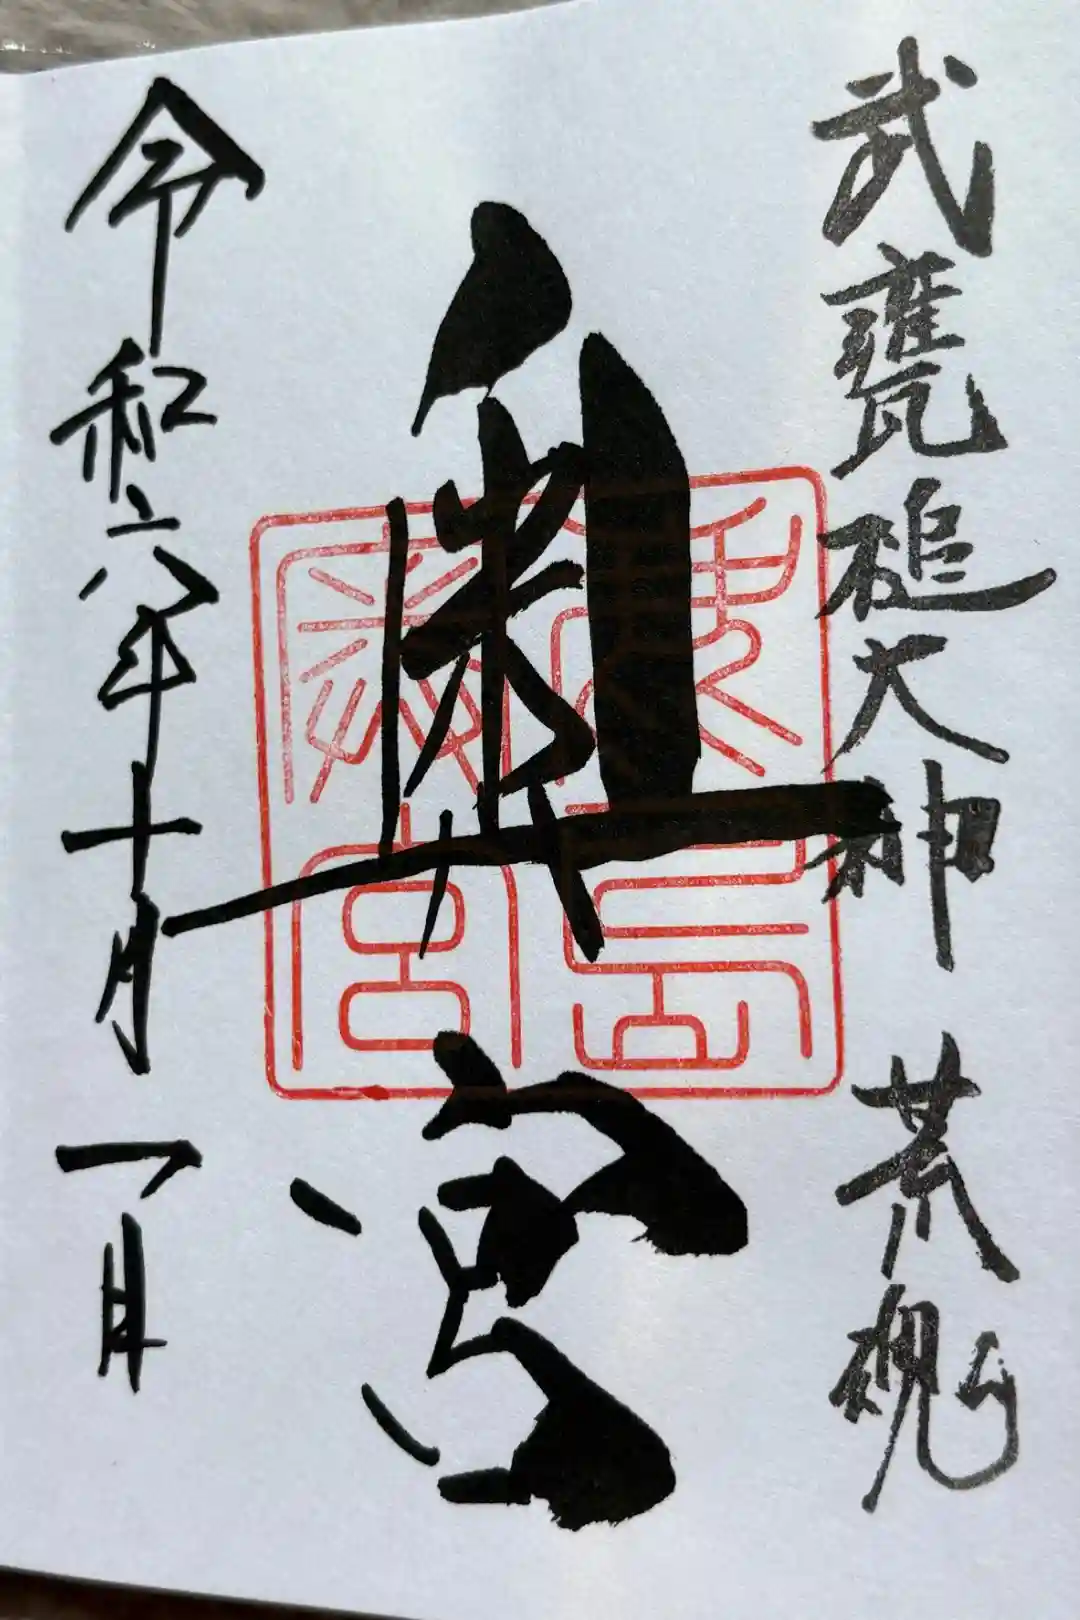 武甕槌大神 荒魂
奥宮
鹿島
奥宮
令和六年十月一日